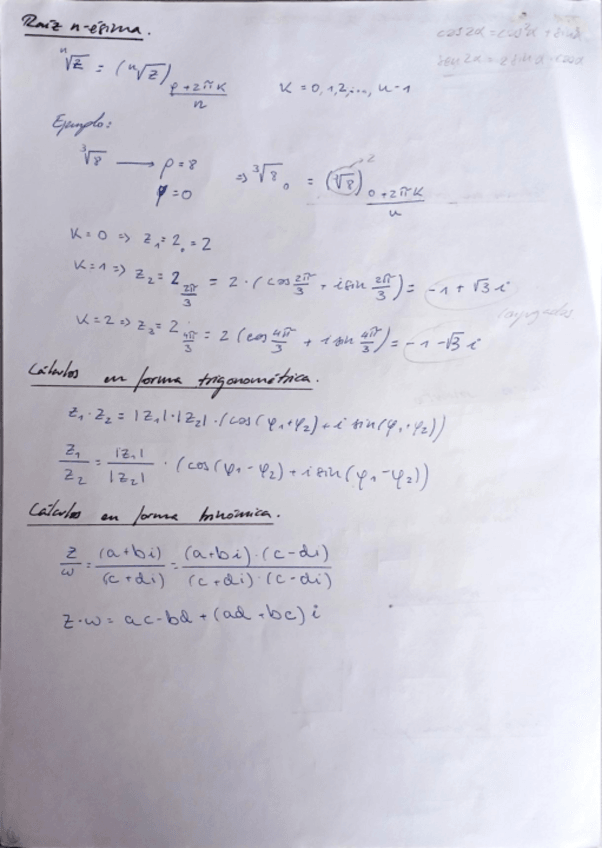 Raíz n-ésima.
cos2α = cos²α + sin²α
sen 2α = 2 sin α · cos α
ⁿ√z = (ⁿ√z) _(φ+2πK)/n   K = 0,1,2,..., n-1
Ejemplo:
³√8 ⟶ ρ = 8 ⇒ ³√8₀ = (³√8) _(0+2πK)/n   2
φ = 0
K=0 ⇒ z₁ = 2₀ = 2
K=1 ⇒ z₂ = 2_(2π/3) = 2·(cos 2π/3 + i sin 2π/3) = -1 + √3 i
conjugados
K=2 ⇒ z₃ = 2_(4π/3) = 2(cos 4π/3 + i sin 4π/3) = -1 - √3 i
Cálculos en forma trigonométrica.
z₁·z₂ = |z₁|·|z₂|·(cos(φ₁+φ₂) + i sin(φ₁+φ₂))
z₁/z₂ = |z₁|/|z₂| · (cos(φ₁-φ₂) + i sin(φ₁-φ₂))
Cálculos en forma binómica.
z/ω = (a+bi)/(c+di) = (a+bi)·(c-di)/(c+di)·(c-di)
z·ω = ac-bd + (ad+bc)i